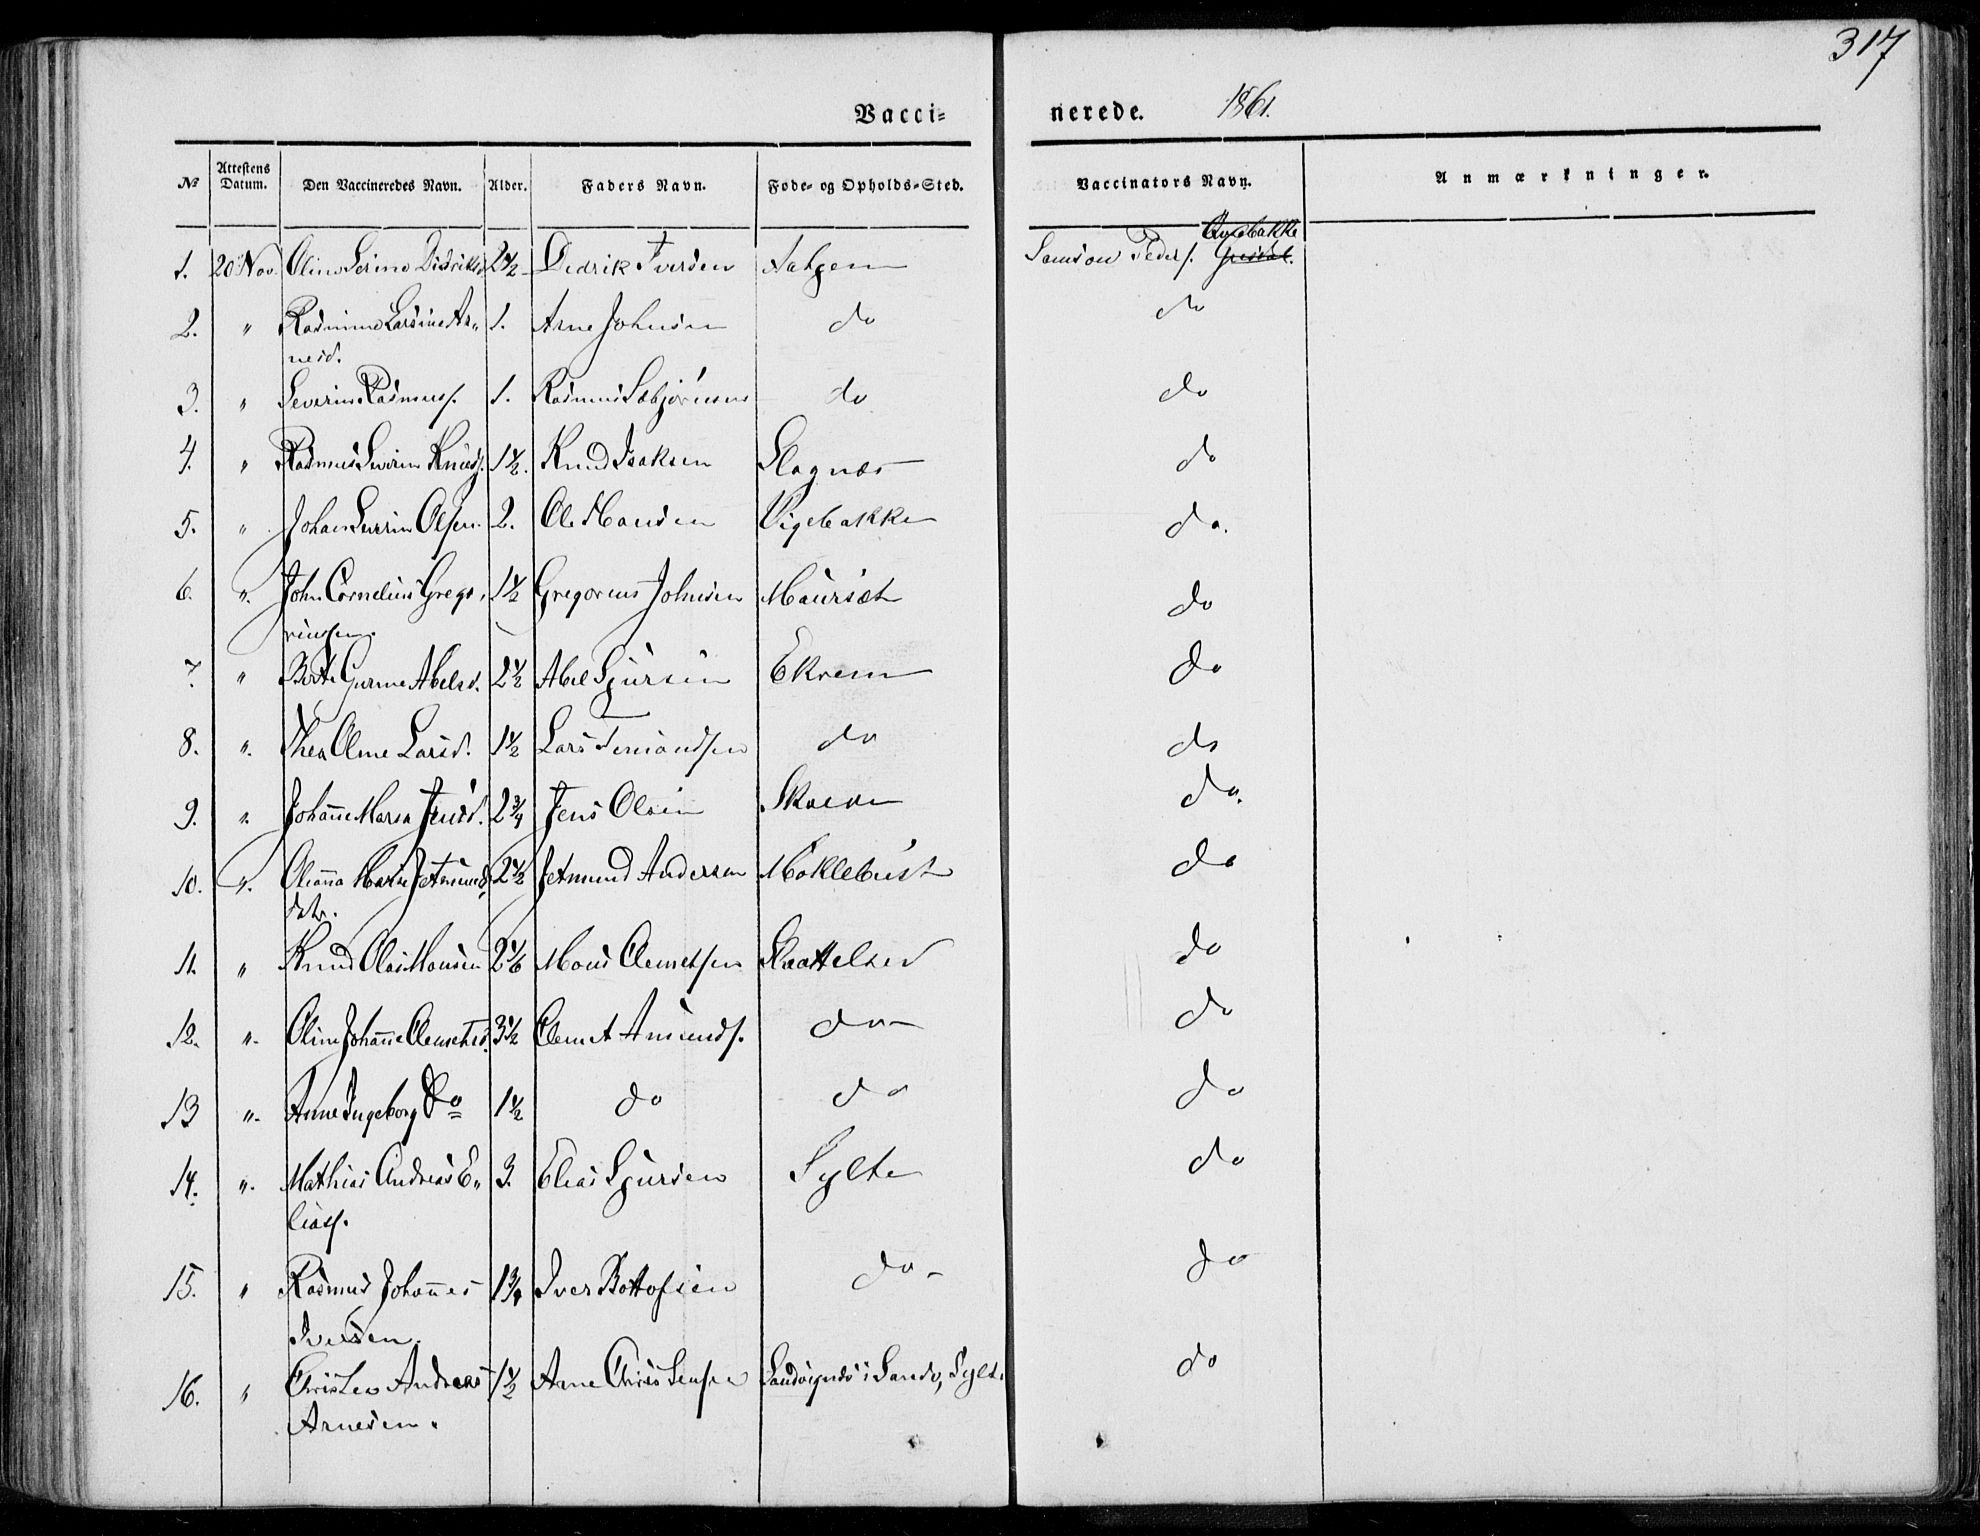 317
Vacci= nerede. 1861.
№ Attestens Datum. Den Vaccineredes Navn. Alder. Faders Navn. Føde- og Opholds-Sted. Vaccinators Navn. Anmærkninger.
1. 20 Nov. Oline Serine Didriksd. 2½ Didrik Iversen Aahjem Samson Peders.
2. " Rasmine Larsine Ar„ 1. Arne Johnsen do do
nesd.
3. " Severin Rasmus. 1. Rasmus Sæbjørnsen do do
4. " Rasmus Severin Knuds. 1½. Knud Isaksen Slagnæs do
5. " Johan Severin Olsen. 2. Ole Hansen Vigebakke do.
6. ". John Cornelius Grego, 1½ Gregorius Johnsen Maursæt do
riussen.
7. " Berte Gurine Abelsd. 2½ Abel Sjursen Ekrem do
8. ". Thea Oline Larsd. 1½ Lars do do
9. ". Johanne Maria Jensd. 2¾ Jens Olsen do.
10. ". Oleanna Marie Jetmund, 2½ Jetmund Andersen Møklebust do
datr.
11. " Knud Olai Monsen 2⅙ Mons Clemetsen Slaattelied do
12. ". Oline Johanne Clemetsd. 3½ Clemet Amunds. do - do
13 ". Anne Ingeborg Do 1½ do do do
14. ". Mathias Andreas E„ 3. Elias Sjursen Sylte do
lias.
15. " Rasmus Johannes 1¾ Iver Bottofsen do - do
Iversen.
16. " Christen Andreas 1½ Arne Christensen i Sande, Sylte do
Arnesen.